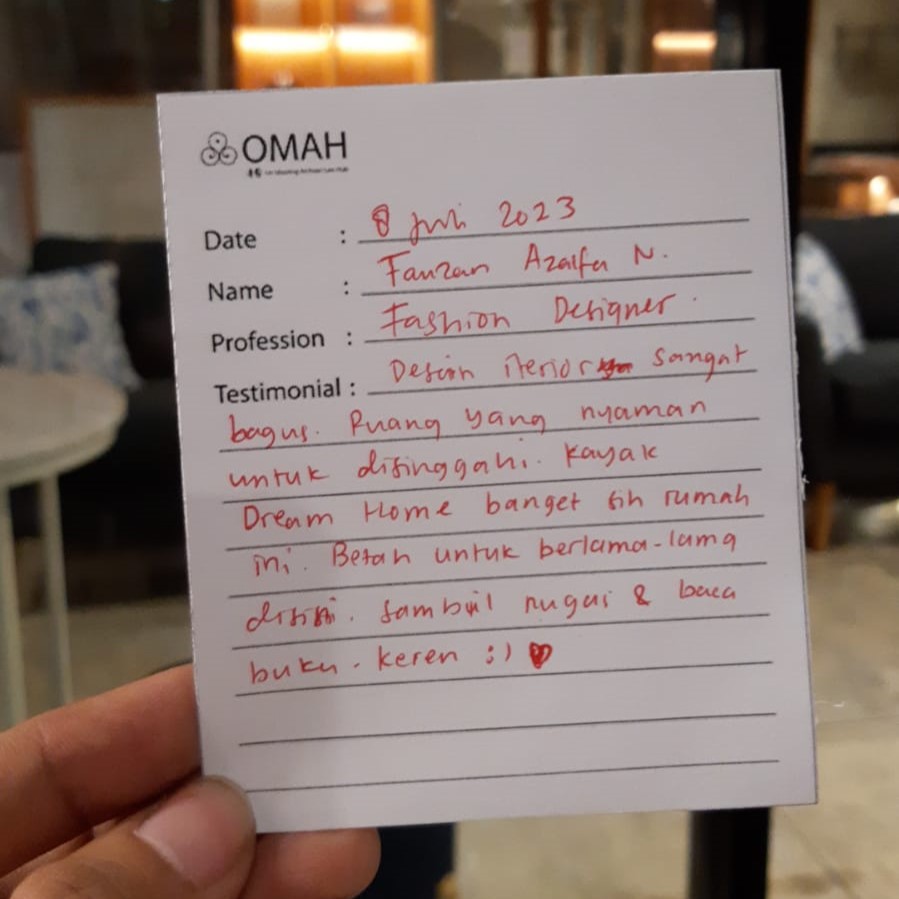 OMAH
Date : 8 Juli 2023
Name : Fauzan Azalfa N.
Profession : Fashion Designer.
Testimonial : Desisn iterior Sangat
bagus. Ruang yang nyaman
untuk disinggahi. Kayak
Dream Home banget sih rumah
ini. Betah untuk berlama-lama
disini. Sambil nugas & baca
buku. Keren :) ♥